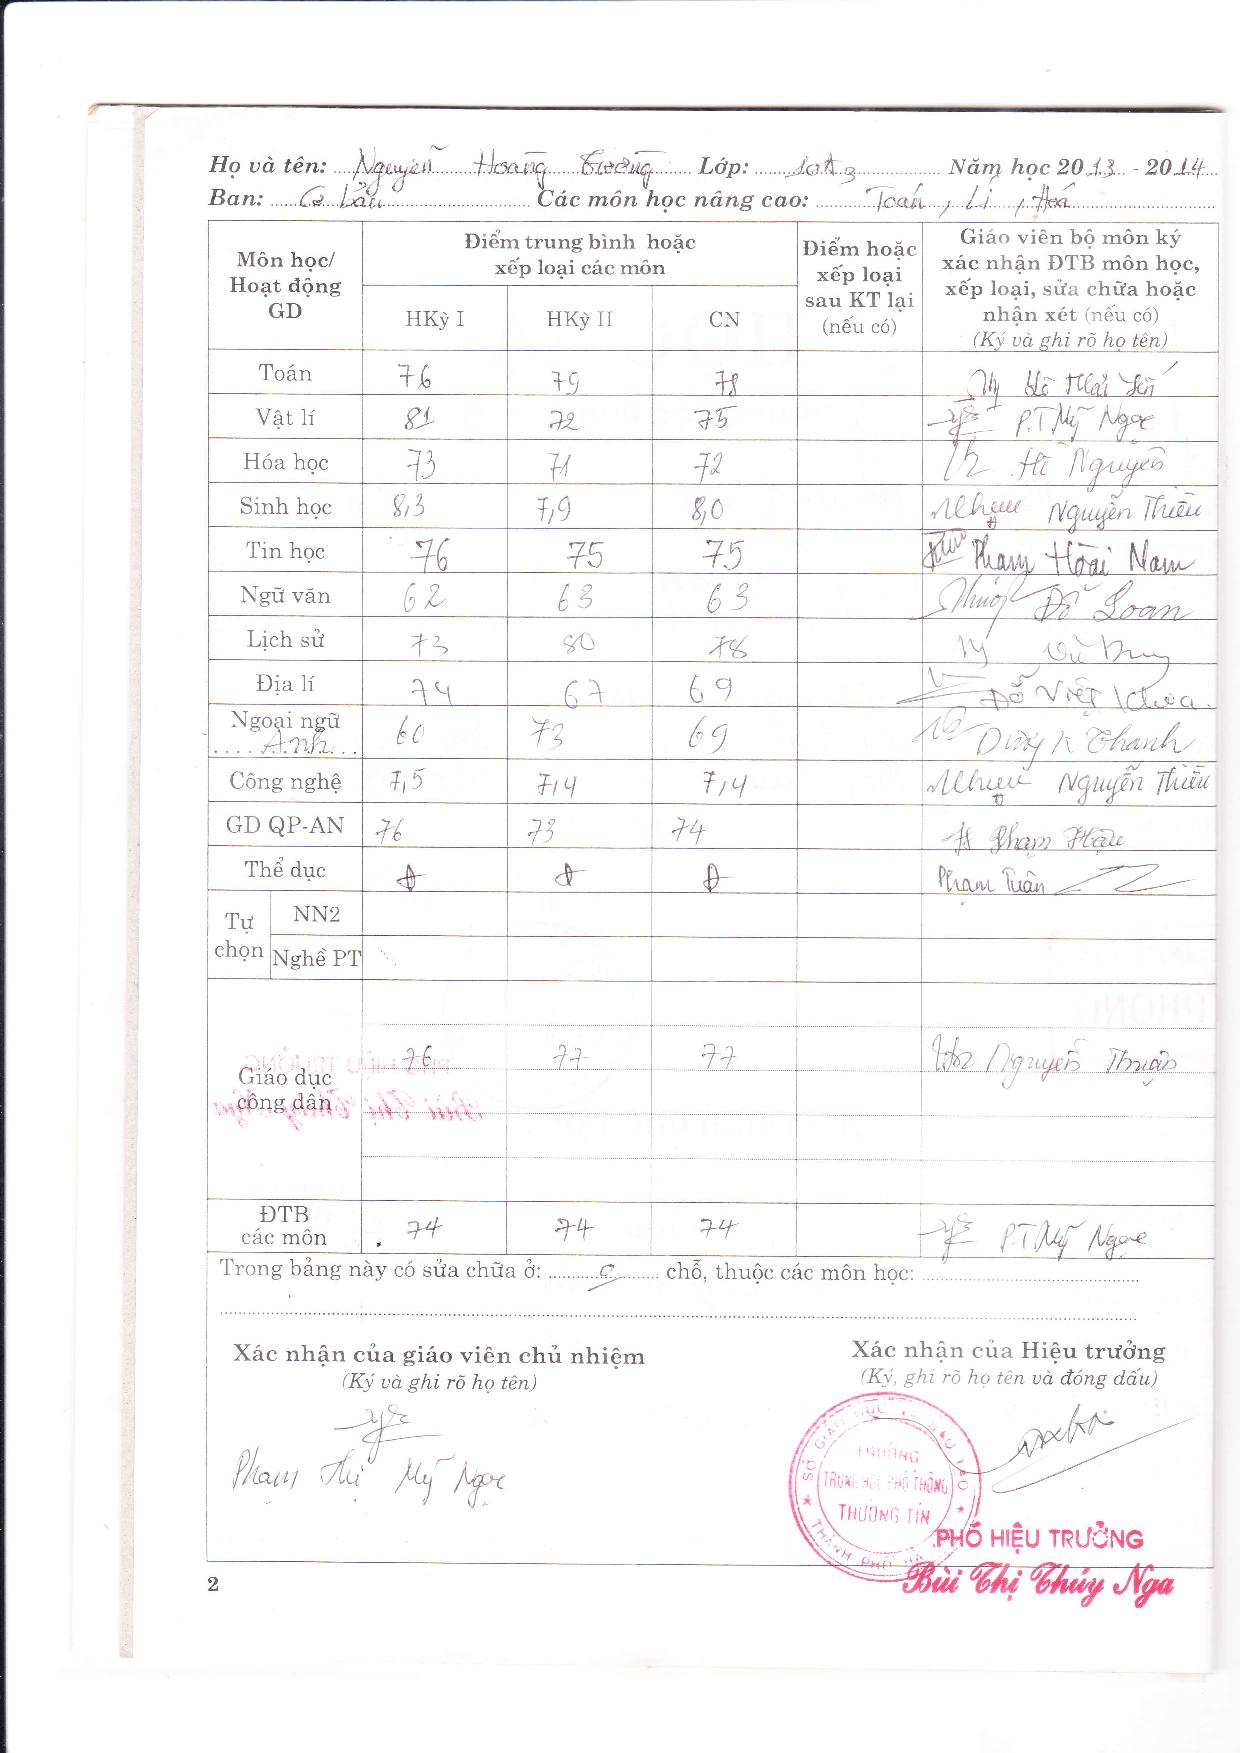 Họ và tên: Nguyễn Hoàng Trường Lớp: 10A3 Năm học 2013 - 2014
Ban: Cơ bản Các môn học nâng cao: Toán, Lí, Hoá
Môn học/ Hoạt động GD
Điểm trung bình hoặc xếp loại các môn
HKỳ I HKỳ II CN
Điểm hoặc xếp loại sau KT lại (nếu có)
Giáo viên bộ môn ký xác nhận ĐTB môn học, xếp loại, sửa chữa hoặc nhận xét (nếu có) (Ký và ghi rõ họ tên)
Toán 76 79 78
Vật lí 81 72 75 P.T Mỹ Ngọc
Hóa học 73 71 72 Nguyên
Sinh học 8,3 7,9 8,0 Nguyễn Thiều
Tin học 76 75 75 Phạm Hoài Nam
Ngữ văn 62 63 63 Đỗ Loan
Lịch sử 73 80 78
Địa lí 74 67 69 Đỗ Việt
Ngoại ngữ 60 73 69 Thanh
Anh
Công nghệ 7,5 7,4 7,4 Nguyễn Thiều
GD QP-AN 76 73 74 Phạm Hậu
Thể dục Đ Đ Đ Phạm Tuân
Tự chọn
NN2
Nghề PT
Giáo dục công dân 76 77 77 Nguyễn Thuận
ĐTB các môn 74 74 74 P.T Mỹ Ngọc
Trong bảng này có sửa chữa ở: 0 chỗ, thuộc các môn học:
Xác nhận của giáo viên chủ nhiệm
(Ký và ghi rõ họ tên)
Phạm Thị Mỹ Ngọc
Xác nhận của Hiệu trưởng
(Ký, ghi rõ họ tên và đóng dấu)
SỞ GIÁO DỤC VÀ ĐÀO TẠO
THÀNH PHỐ HÀ
TRƯỜNG
TRUNG HỌC PHỔ THÔNG
THƯỜNG TÍN
PHÓ HIỆU TRƯỞNG
Bùi Thị Thúy Nga
2